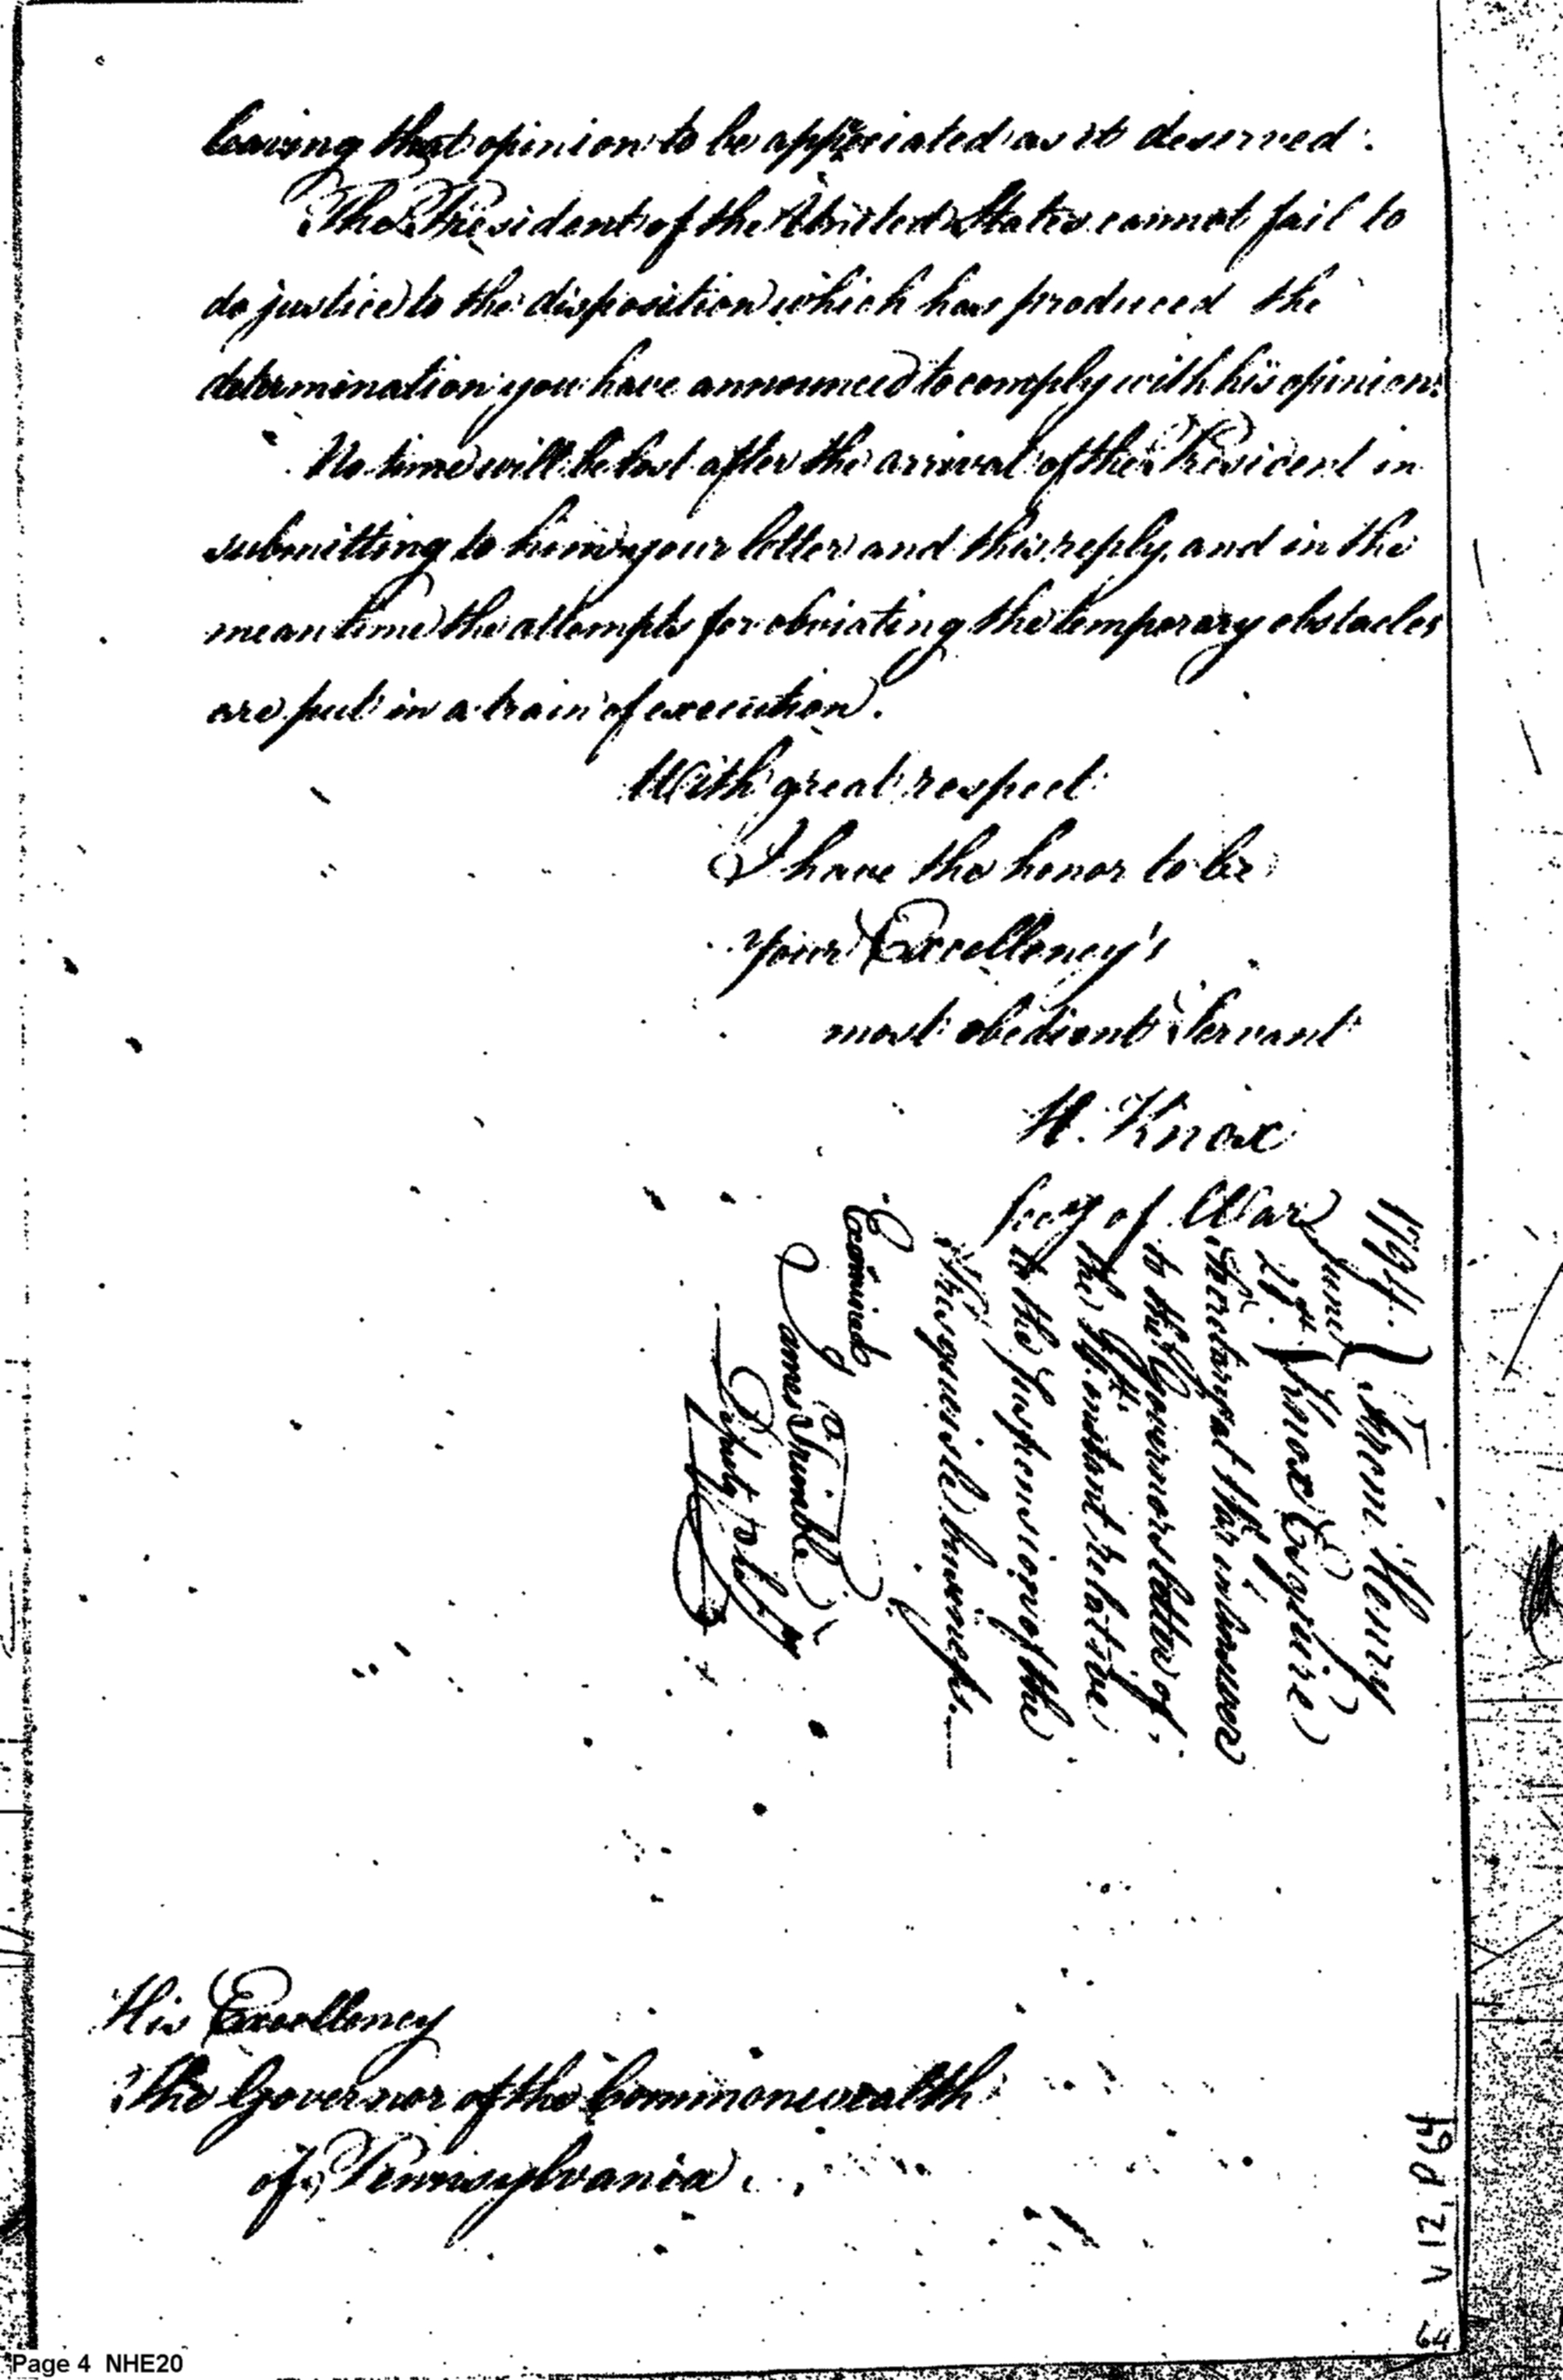 leaving that opinion to be appreciated as it deserved.
The President of the United States cannot fail to
do justice to the disposition which has produced the
determination you have announced to comply with his opinion.
No time will be lost after the arrival of the President in
submitting to him your letter and this reply, and in the
mean time the attempts for obviating the temporary obstacles
are put in a train of execution.
With great respect
I have the honor to be
your Excellency's
most obedient Servant
H. Knox
Secy of War
1794. From Henry
June Knox Esquire
Secretary at War in answer
to the Governors letter of
the instant relative
to the suspension of the
Presquisle business.
Examined
James Trimble
Deputy Secy
His Excellency
The Governor of the Commonwealth
of Pennsylvania.
V 12, P 64
64
Page 4 NHE20